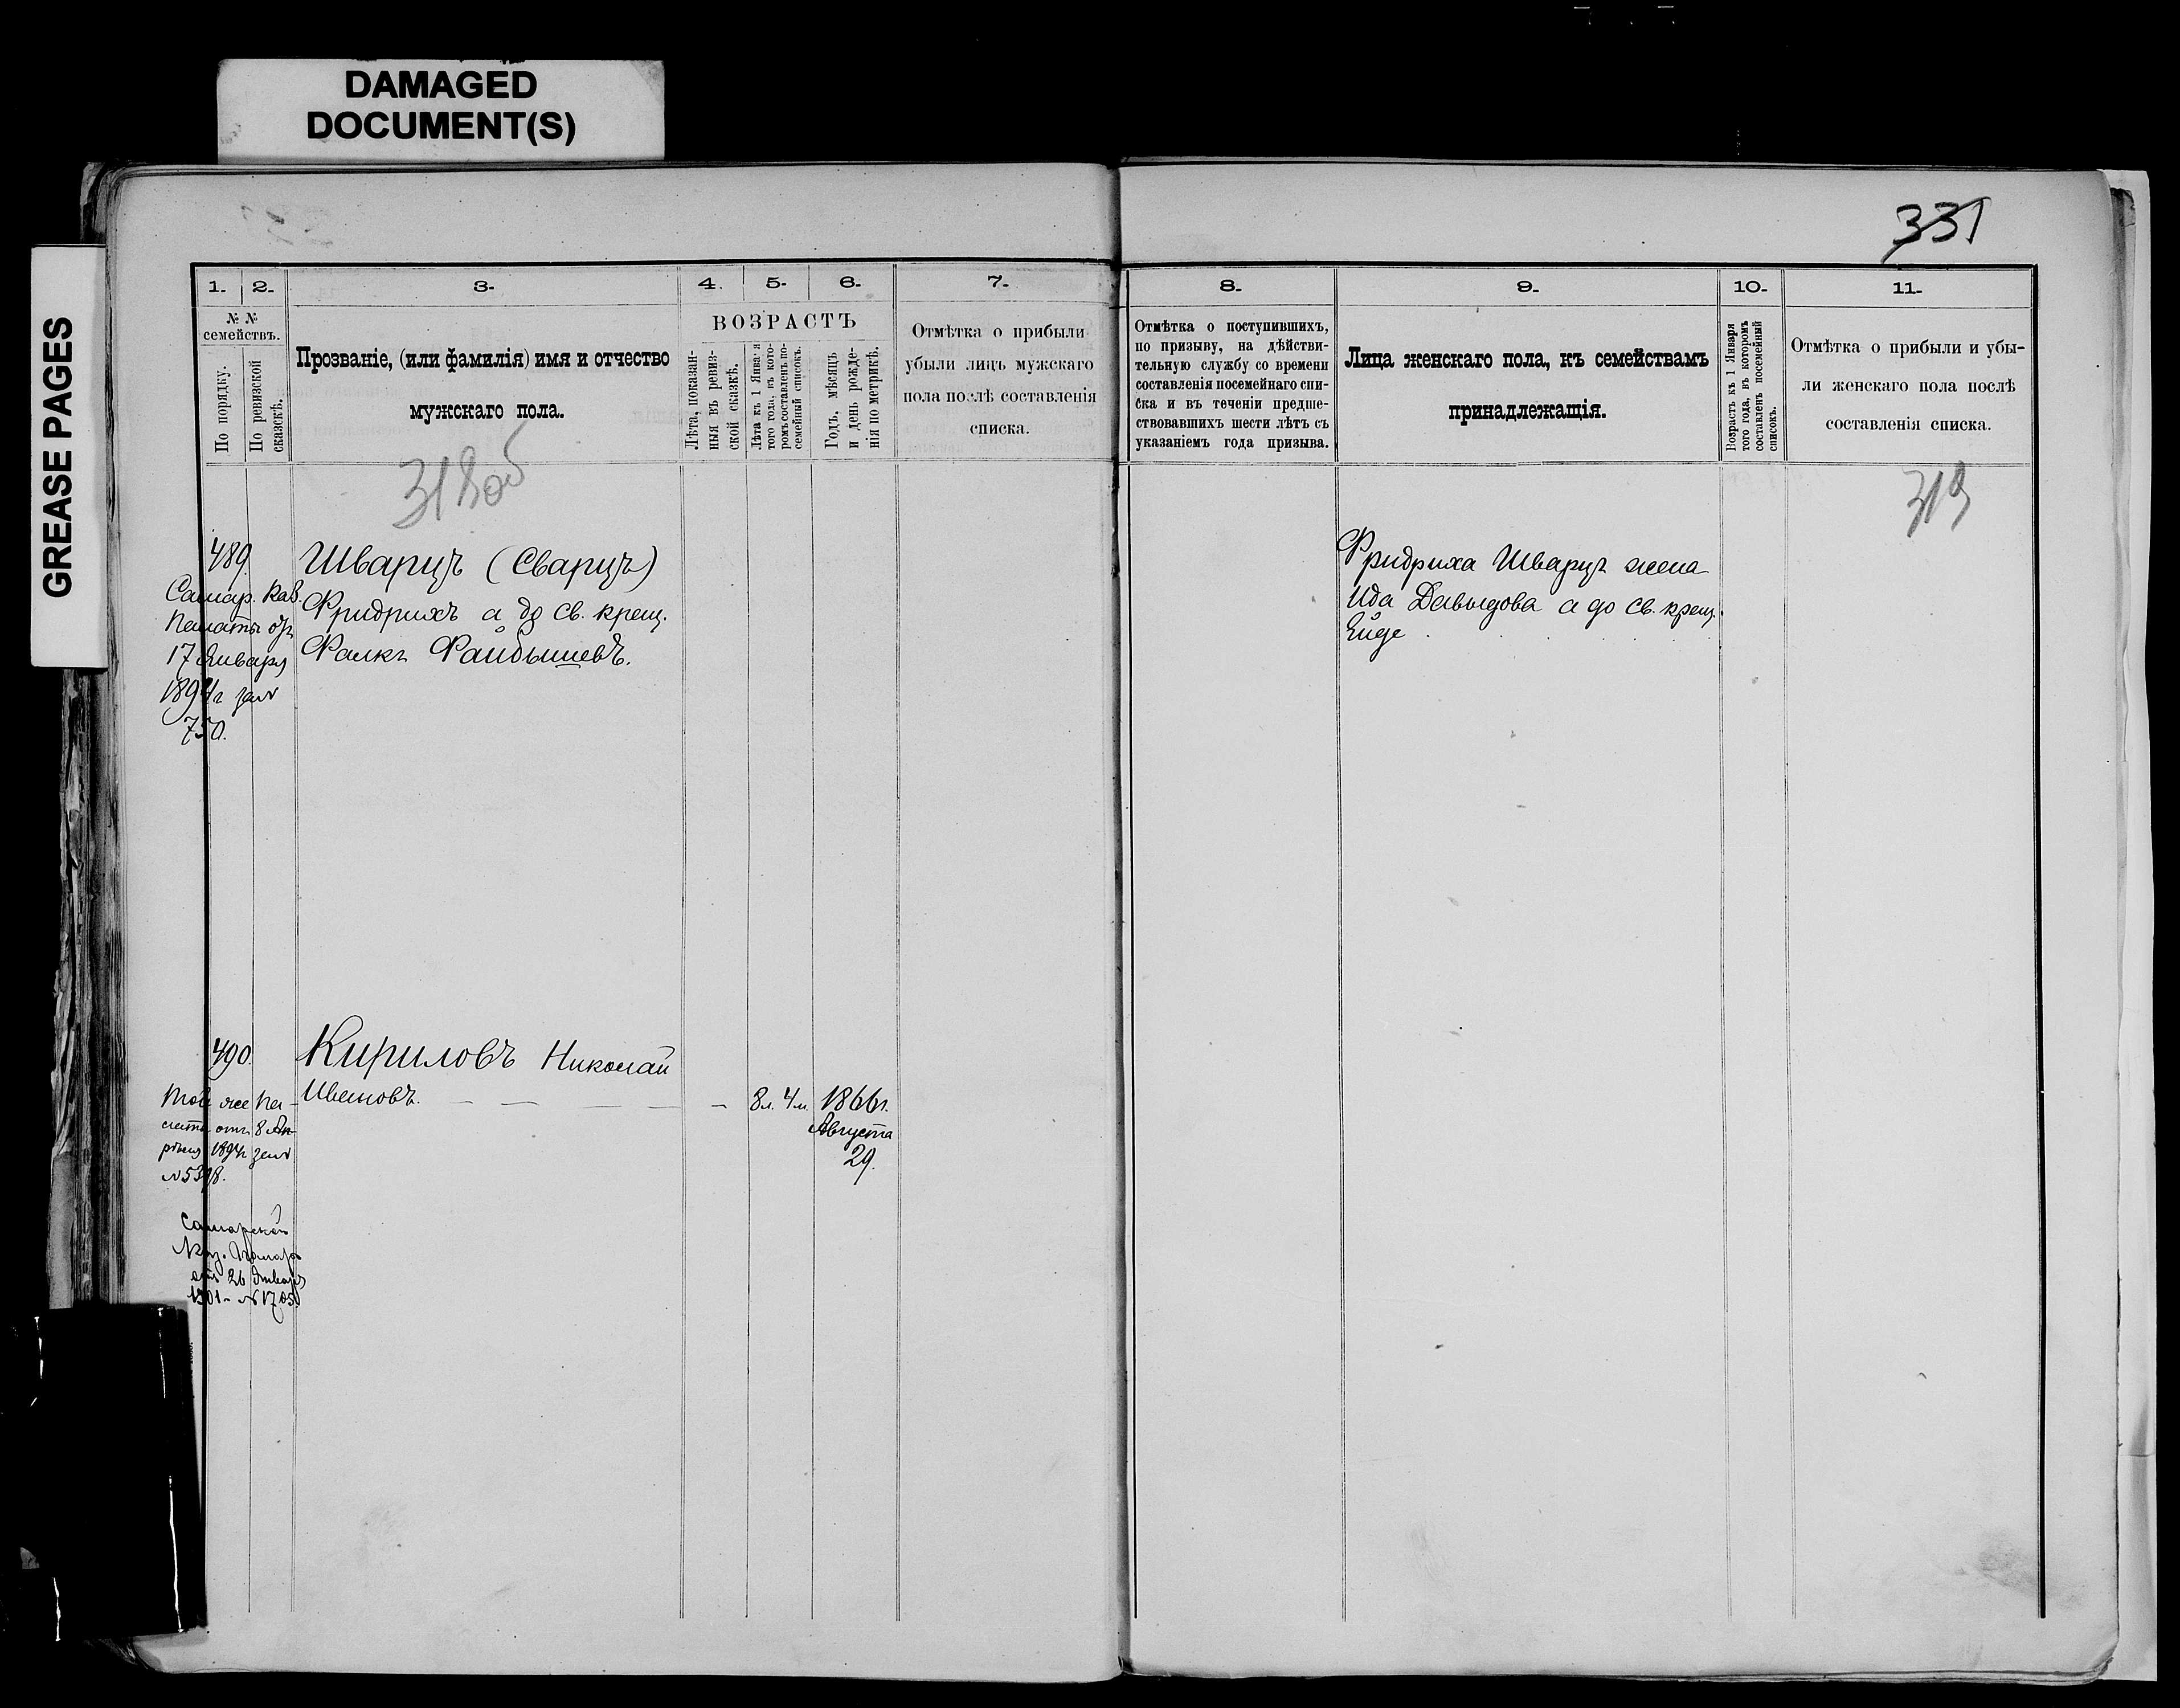 DAMAGED
DOCUMENT(S)
GREASE PAGES
331
1.
2.
3.
4.
5.
6.
7.
8.
9.
10.
11.
№ №
семействъ.
По порядку.
По ревизской
сказскѣ.
Прозваніе, (или фамилія) имя и отчество
мужскаго пола.
ВОЗРАСТЪ
Лѣта, показан-
ныя въ ревиз-
ской сказкѣ.
Лѣта къ 1 Января
того года, въ кото-
ромъ составленъ по-
семейный списокъ.
Годъ, мѣсяцъ
и день рожде-
нія по метрикѣ.
Отмѣтка о прибыли
убыли лицъ мужскаго
пола послѣ составленія
списка.
Отмѣтка о поступившихъ,
по призыву, на дѣйстви-
тельную службу со времени
составленія посемейнаго спи-
ска и въ теченіи предше-
ствовавшихъ шести лѣтъ съ
указаніемъ года призыва.
Лица женскаго пола, къ семействамъ
принадлежащія.
Возрастъ къ 1 Января
того года, въ которомъ
составленъ посемейный
списокъ.
Отмѣтка о прибыли и убы-
ли женскаго пола послѣ
составленія списка.
318об
319
489
Самар. Каз.
Палаты отъ
17 Января
1894г за №
750.
Шварцъ (Сварцъ)
Фридрихъ а до св. крещ.
Фалкъ Файбышевъ.
Фридриха Шварцъ жена
Ида Давыдова а до св. крещ.
Ейде
490.
Той же Па-
латы отъ 8 Ап-
рѣля 1894г за
№ 5398.
Кириловъ Николай
Ивановъ. — — — — —
8л. 4м.
1866г.
Августа
29.
Самарской
Каз. Палаты
отъ 26 Января
1901 - № 1705